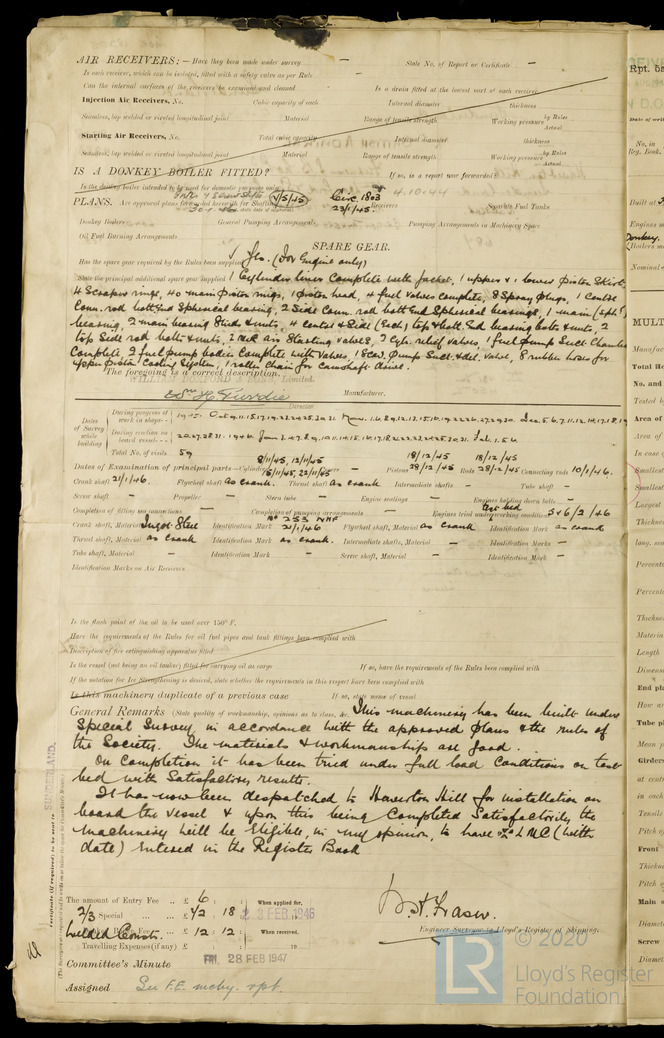 AIR RECEIVERS:—Have they been made under survey — State No. of Report or Certificate —
Is each receiver, which can be isolated, fitted with a safety valve as per Rule
Can the internal surfaces of the receivers be examined and cleaned Is a drain fitted at the lowest part of each receiver
Injection Air Receivers, No. Cubic capacity of each Internal diameter thickness
Seamless, lap welded or riveted longitudinal joint Material Range of tensile strength Working pressure by Rules Actual
Starting Air Receivers, No. Total cubic capacity Internal diameter thickness
Seamless, lap welded or riveted longitudinal joint Material Range of tensile strength Working pressure by Rules Actual
IS A DONKEY BOILER FITTED? If so, is a report now forwarded?
Is the donkey boiler intended to be used for domestic purposes only
PLANS. Are approved plans forwarded herewith for Shafting 1/5/45 Circ. 1803 23/1/45. Receivers 4.10.44 Separate Fuel Tanks
Donkey Boilers General Pumping Arrangements Pumping Arrangements in Machinery Space
Oil Fuel Burning Arrangements
SPARE GEAR.
Has the spare gear required by the Rules been supplied Yes. (For Engine only)
State the principal additional spare gear supplied 1 Cylinder liner complete with Jacket, 1 upper & 1 lower Piston Skirt,
4 Scraper rings, 40 main Piston rings, 1 Piston head, 4 fuel valves complete, 8 Spray Plugs, 1 Centre
Conn. rod bott. End Spherical bearing, 2 Side Conn. rod bott. End Spherical bearings, 1 main (sph.)
bearing, 2 main bearing Studs & nuts, 4 centre & Side (Each) top & bott. End bearing bolts & nuts, 2
top Side rod bolts & nuts, 2 air Starting valves, 2 Cyl. relief valves, 1 fuel Pump Suct. Chamber
Complete, 2 fuel pump bodies Complete with Valves, 1 Scav. pump Suct. & del. valve, 8 rubber hoses for
upper piston cooling System, 1 roller chain for camshaft drive.
The foregoing is a correct description,
WILLIAM DOXFORD & SONS, Limited.
Wm H. Purdie Manufacturer.
Director
Dates of Survey while building
During progress of work in shops - - 1945. Oct. 9,11,15,17,19,23,24,25,30,31 Nov. 1,6,8,9,12,13,15,16,19,22,26,27,29,30. Dec. 5,6,7,11,12,14,17,18,19
During erection on board vessel - - - 20,27,28,31. 1946 Jan. 3,4,7,8,9,10,11,14,15,16,17,18,22,23,24,25,30,31 Feb. 1,5,6.
Total No. of visits 59
Dates of Examination of principal parts—Cylinders 8/11/45, 12/11/45 15/11/45, 22/11/45 Covers — Pistons 18/12/45 28/12/45 Rods 18/12/45 28/12/45 Connecting rods 10/1/46.
Crank shaft 21/1/46. Flywheel shaft as crank. Thrust shaft as crank Intermediate shafts — Tube shaft —
Screw shaft — Propeller — Stern tube — Engine seatings — Engines holding down bolts —
Completion of fitting sea connections — Completion of pumping arrangements — Engines tried under working conditions Test bed 5 & 6/2/46
Crank shaft, Material Ingot Steel Identification Mark No 253 NHF 21/1/46 Flywheel shaft, Material as crank Identification Mark as crank
Thrust shaft, Material as crank Identification Mark as crank. Intermediate shafts, Material — Identification Marks —
Tube shaft, Material — Identification Mark — Screw shaft, Material — Identification Mark —
Identification Marks on Air Receivers
Is the flash point of the oil to be used over 150° F.
Have the requirements of the Rules for oil fuel pipes and tank fittings been complied with
Description of fire extinguishing apparatus fitted
Is the vessel (not being an oil tanker) fitted for carrying oil as cargo If so, have the requirements of the Rules been complied with
If the notation for Ice Strengthening is desired, state whether the requirements in this respect have been complied with
Is this machinery duplicate of a previous case If so, state name of vessel
General Remarks (State quality of workmanship, opinions as to class, &c. This machinery has been built under
Special Survey in accordance with the approved plans & the rules of
the Society. The materials & workmanship are good.
On Completion it has been tried under full load conditions on test
bed with Satisfactory results.
It has now been despatched to Haverton Hill for installation on
board the vessel & upon this being Completed Satisfactorily the
machinery will be Eligible, in my opinion, to have LMC (with
date) entered in the Register Book
SUNDERLAND.
The amount of Entry Fee .. £ 6 : When applied for,
2/3 Special ... £ 42 : 18 23 FEB 1946
Welded Const. Fee ... £ 12 : 12 When received,
Travelling Expenses (if any) £ 19
N. H. Fraser.
Engineer Surveyor to Lloyd's Register of Shipping.
Committee's Minute FRI. 28 FEB 1947
Assigned See F.E. mchy. rpt.
© 2020
Lloyd's Register
Foundation
LR
Rpt. 5a
MULT